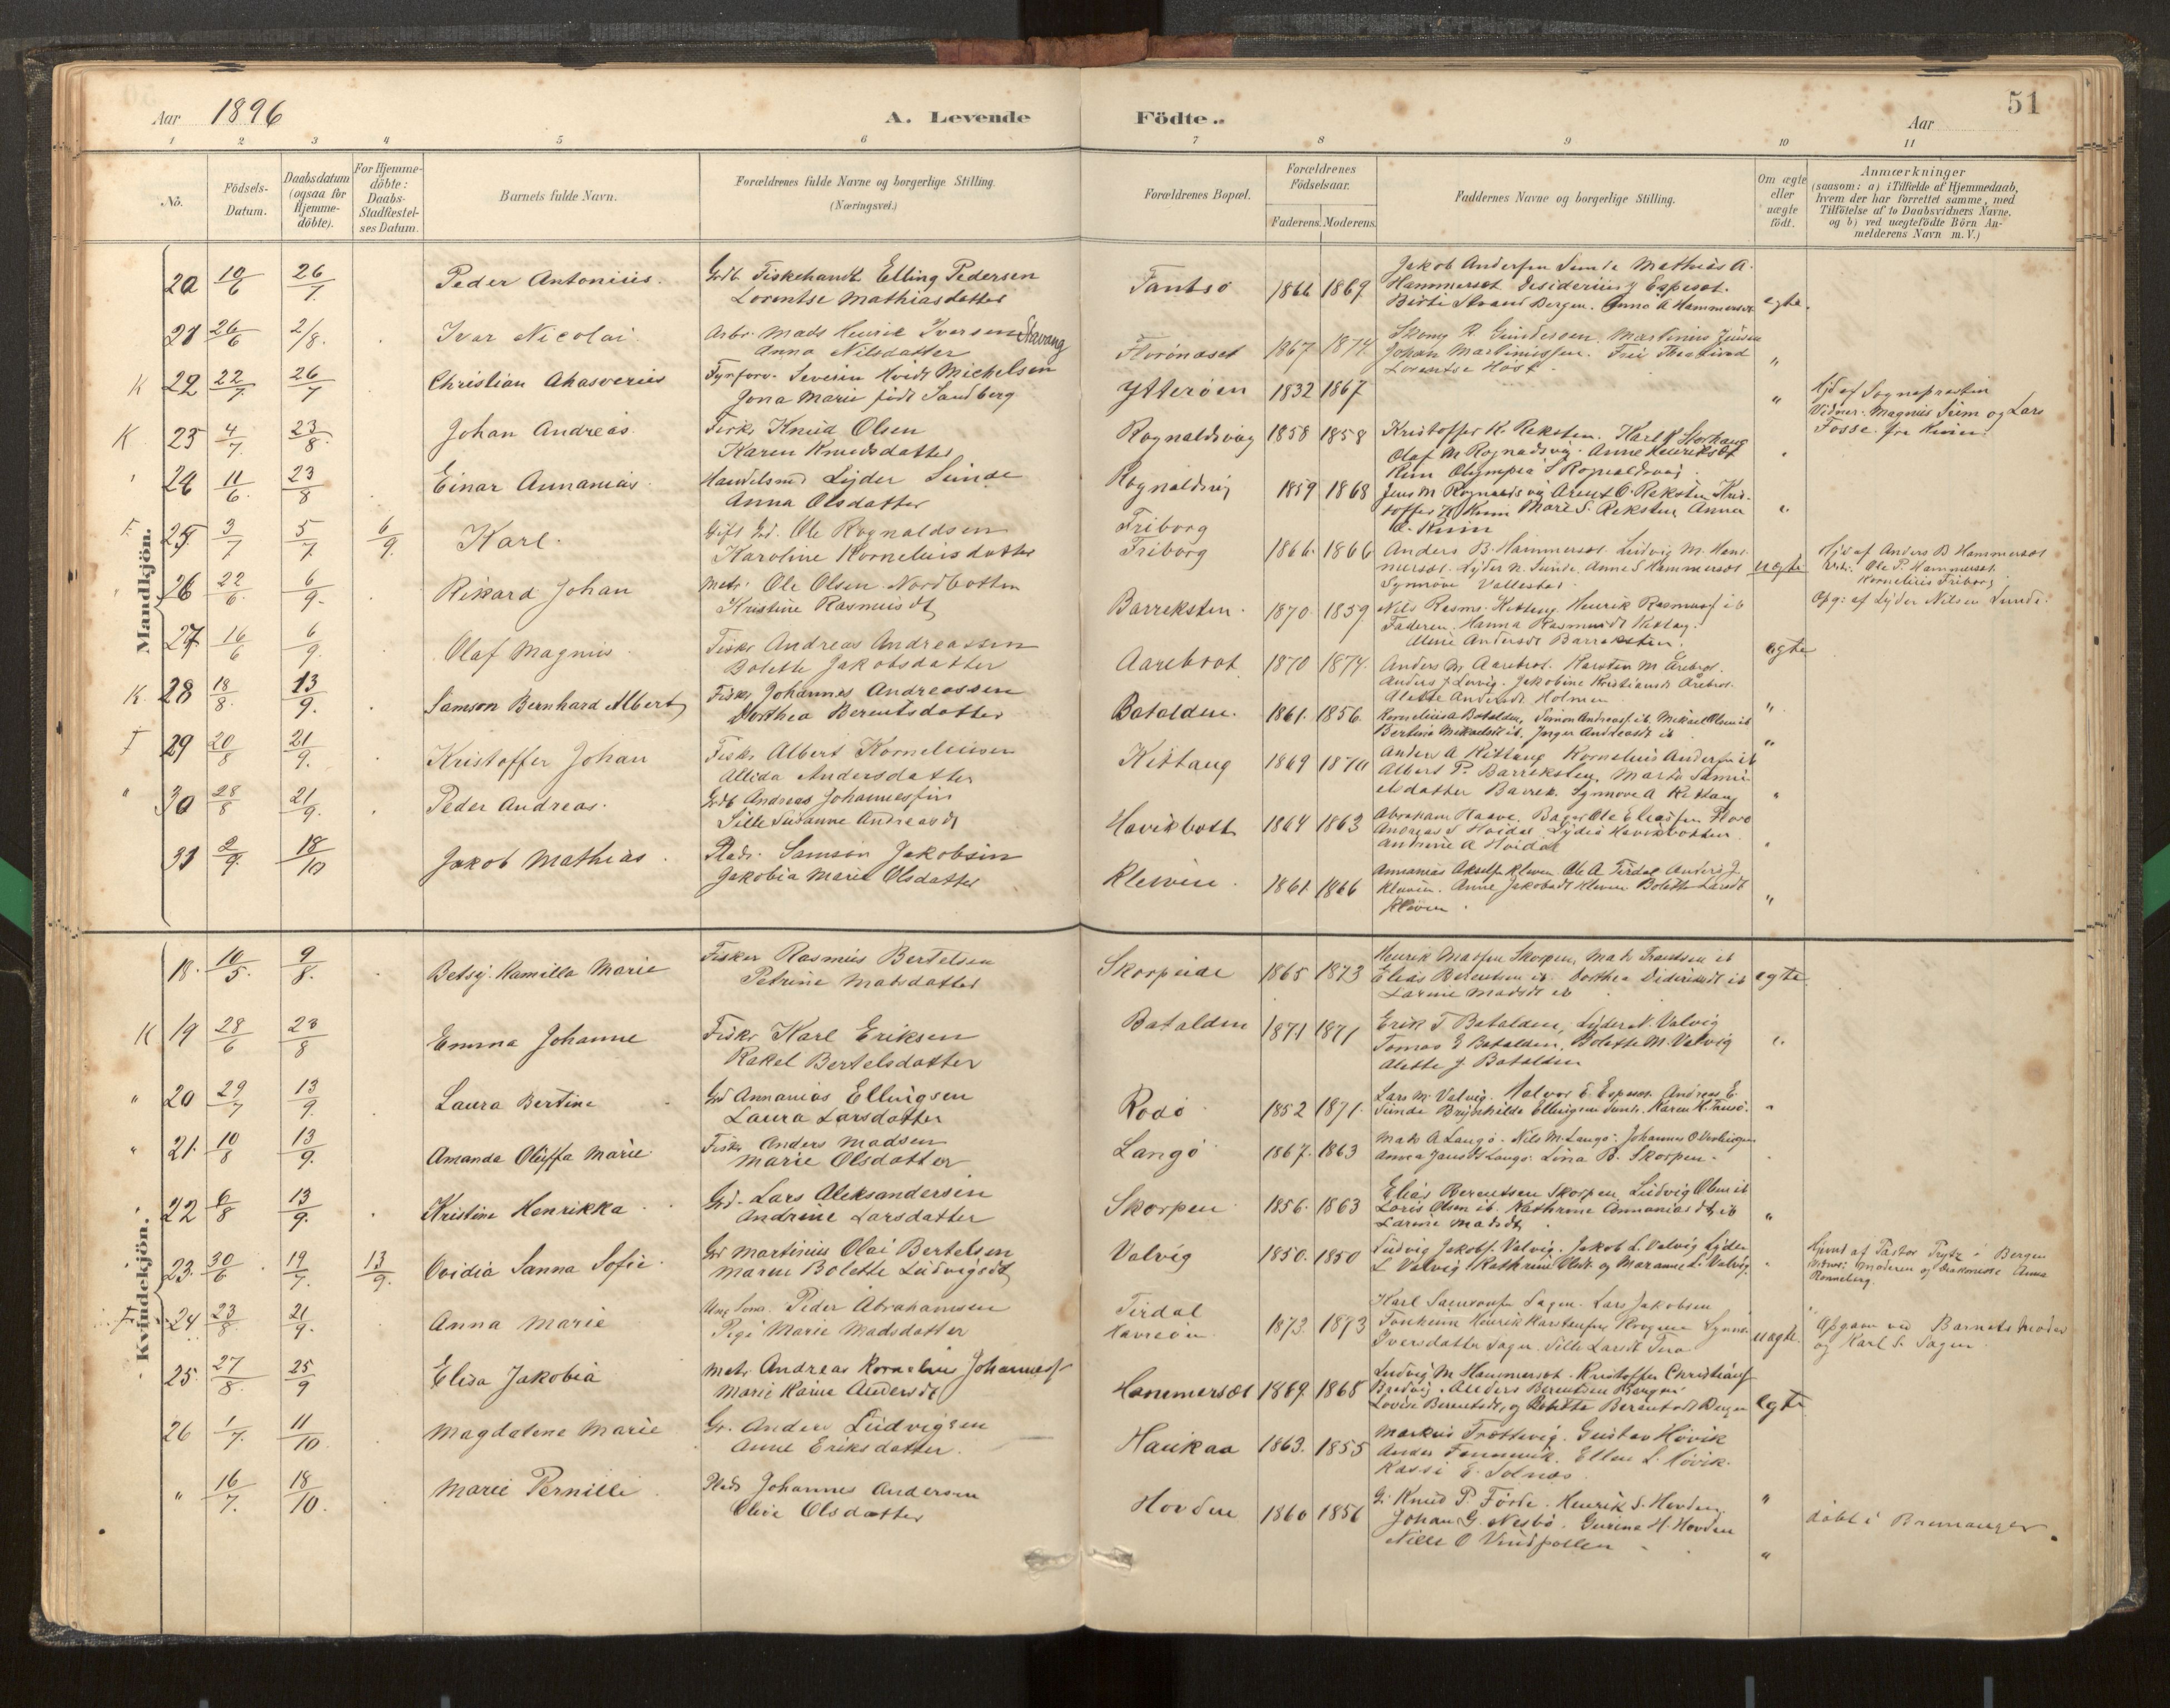 51
Aar 1896 A. Levende Födte.. Aar
1 2 3 4 5 6 7 8 9 10 11
No.
Födsels-
Datum.
Daabsdatum
(ogsaa for
Hjemme-
döbte).
For Hjemme-
döbte:
Daabs-
Stadfæstel-
ses Datum.
Barnets fulde Navn.
Forældrenes fulde Navne og borgerlige Stilling.
(Næringsvei.)
Forældrenes Bopæl.
Forældrenes
Födselsaar.
Faderens. Moderens.
Faddernes Navne og borgerlige Stilling.
Om ægte
eller
uægte
födt.
Anmærkninger
(saasom: a) i Tilfælde af Hjemmedaab,
hvem der har forrettet samme, med
Tilföielse af to Daabsvidners Navne,
og b) ved uægtefödte Börn An-
melderens Navn m. V.)
Mandkjön.
20 10/6 26/7 Peder Antonius. Fiskehandt. Elling Pedersen
Lorentse Mathiasdatter
1866 1869 Jakob Andersen Sunde Mathias A.
Hammerset
Bergen. Anna A Hammerset egte.
21 26/6 2/8. Ivar Nicolai. Arb. Mads Henrik Iversen Stavang
Anna Nilsdatter
Florönæset 1867 1874 Martinius Jensen
Johan Martinussen.
Lorentse Höst. "
K 22 22/7 26/7 Christian Ahasverius Fyrforv. Severin Hvidt Michelsen
Jona Marie født Sandberg
Ytteröen 1832 1867 " Hjd af Sognepresten
Vidner. Magnus Siem og Lars
Fosse. fra Kinn.
K 23 4/7 23/8. Johan Andreas. Fisker Knud Olsen
Karen Knudsdatter
Rognaldsvåg 1858 1858 Kristoffer K. Reksten. Karl K Storhaug
Olaf M. Rognaldsvåg. Anne Henriksdt
Kinn Olympia S Rognaldsvåg.
24 11/6. 23/8 Einar Annanias. Handelsmd Lyder Sunde
Anna Olsdatter
Rognaldsvåg 1859 1868 Jens M Rognaldsvåg Arent O. Reksten Kris-
toffer K Kinn Mari S. Reksten, Anna
Kinn
F. 25 3/7 5/7 6/9. Karl. Gift Gd. Ole Rognaldsen
Karoline Korneliusdatter
Friborg
Friborg 1866. 1866 Anders B. Hammerset Ludvig M. Ham-
merset. Lyder N. Sunde. Anne S Hammerset
Synnöve Vallestad. uegte Hjd af Anders B Hammerset
Vidn: Ole P. Hammerset
Kornelius Friborg
Opg: af Lyder Nilsen Sunde.
26 22/6. 6/9. Rikard Johan Matr. Ole Olsen Nordbotten
Kristine Rasmusdt
Barreksten. 1870. 1859 Nils Rasms. Kittang. Henrik Rasmusf ib
Faderen. Hanna Rasmusdt Kittang.
Andersdt Barreksten. egte
27 16/6 6/9. Olaf Magnus. Fisker Andreas Andreassen
Bolette Jakobsdatter
Aarebrot 1870 1874. Anders M. Aarebrot. Karsten M Årebrot.
Jakobine Kristiansdt Årebrot.
Alette Andersdt Holmen "
K. 28 18/8. 13/9. Samson Bernhard Albert Fisker Johannes Andreassen
Dorthea Berentsdatter
Batalden. 1861. 1856. Kornelius A Batalden, Simon Andreasf. ib. Mikael Olsen ib
Bertine Mikaelsdt ib. Inger Andreasdt ib "
F 29 20/8 21/9. Kristoffer Johan Fisker Albert Kornelinsen
Allida Andersdatter
Kittang 1869 1870 Anders A Kittang Kornelius Andersen ib
Albert P. Barreksten, Marta Samu-
elsdatter Barrek. Synnöve A Kittang
" 30 28/8 21/9. Peder Andreas. Gdb. Andreas Johannesfin
Sille Susanne Andreasdt
Havikbott 1864 1863 Abraham Haave. Bager Ole Eliassen Florö
Andreas S Hovdal. Havikbotten
Andrine A Hovdal
31 2/9. 18/10 Jakob Mathias. Plads. Samson Jakobsen
Jakobia Marie Olsdatter
Kleiven. 1861 1866 Annanias Akself Kleven Ole A Tirdal Anders J.
Kleven. Anne Jakobsdt Kleven Bolette Larsdt
Kleven. "
Kvindekjön.
18. 10/5. 9/8. Betsy Kamilla Marie Fisker Rasmus Bertelsen
Petrine Matsdatter
Skorpeide 1865 1873 Henrik Madsen Skorpen, Mads Frantsen ib
Elias Berentsen ib. Dorthea Dideriksdt ib
Larine Madsdt ib egte
K 19 28/6 23/8 Emma Johanne Fisker Karl Eriksen
Rakel Bertelsdatter
Batalden 1871 1871 Erik T. Batalden, Lyder N. Valvig
Tomas E Batalden, Bolette M. Valvig
Alette J. Batalden
" 20 29/7 13/9. Laura Bertine Gd Annanias Ellingsen
Laura Larsdatter
Rodö 1852 1871. Lars M. Valvig. Halvor E. Espeset. Andreas E.
Sunde Brynhilda Ellingsen Sunde. Karen H.
" 21. 10/8 13/9. Amanda Oluffa Marie. Fisker Anders Madsen
Marie Olsdatter
Langö 1867. 1863 Mats A Langö. Nils M. Langö. Johannes O
Anna Jansdt Langö. Lina B. Skorpen.
22 6/8 13/9. Kristine Henrikka. Gd. Lars Aleksandersen
Andrine Larsdatter
Skorpen 1856. 1863 Elias Berentsen Skorpen, Ludvig Olsen ib
Olsen ib. Kathrine Annaniasdt ib
Larine Madsdt. "
23. 30/6 19/7. 13/9. Ovidia Sanna Sofie. Gd Martinus Olai Bertelsen
Maren Bolette Ludvigsdt
Valvig 1850. 1850 Ludvig Jakobs. Valvig. Jakob L. Valvig Lyder
L Valvig Kathrine og Maranne L. Valvig. Hjemd af Pastor Trytz i Bergen
Moderen og Diakonesse Anna
Rönneberg.
F. 24 23/8. 21/9. Anna Marie Ung. Peder Abrahamsen
Marie Madsdatter
Tirdal
Havreön 1873. 1893 Karl Samsonsen Sagen. Lars Jakobsen
Henrik Karstensen
Iversdatter Sagen. Sille Larsdt uegte. Opgave ved Barnets moder
og Karl S. Sagen
25. 27/8. 25/9 Elisa Jakobia Matr. Andreas Kornelius Johannesf.
Marie Karine Andersdt
Hammerset 1869. 1868 Ludvig M Hammerset. Kristoffer Christians
Anders Berentsen Bergen
Lovise Berentsdt, og Berentsdt Bergen egte
26 1/7. 11/10 Magdalene Marie Gr. Anders Ludvigsen
Anne Eriksdatter.
Haukaa 1863. 1855 Markus Trettevig. Gustav Hövik
Ellen L. Hövik.
E. Solnæs
" 16/7. 18/10. Marie Pernille Plads Johannes Andersen
Olive Olsdatter
Hovden 1860 1856 G. Knud P. Förde. Henrik S. Hovden,
Johan G. Nesbö. Gurina H. Hovden
Nille O Vindpollen " döbt i Bremanger